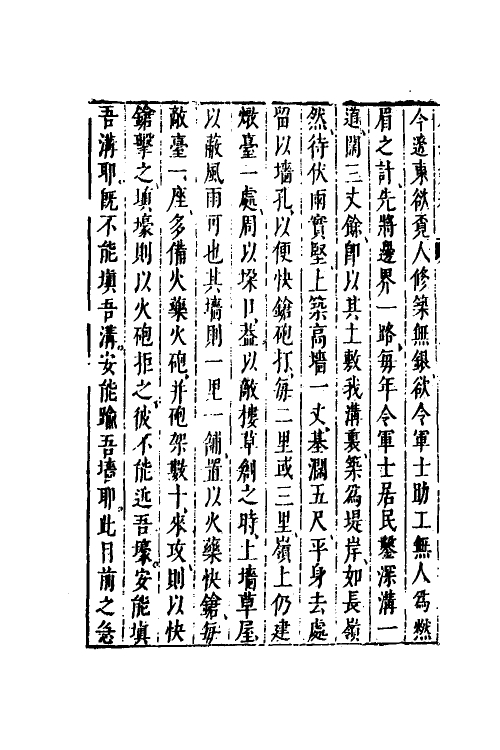 今遼東欲覔人修築無銀欲令軍士助工無人爲燃
眉之計先將邊界一路每年令軍士居民鑿深溝一
道闊三丈餘卽以其土敷我溝裏築爲堤岸如長嶺
然待伏雨實堅上築高墻一丈基濶五尺平身去處
留以墻孔以便快鎗砲打每二里或三里嶺上仍建
墩臺一處周以垛口葢以敵樓草創之時上墻草屋
以蔽風雨可也其墻則一里一舖置以火藥快鎗每
敵臺一座多備火藥火砲并砲架數十來攻則以快
鎗擊之填壕則以火砲拒之彼不能近吾壕安能填
吾溝耶旣不能填吾溝安能踰吾墻耶此目前之急